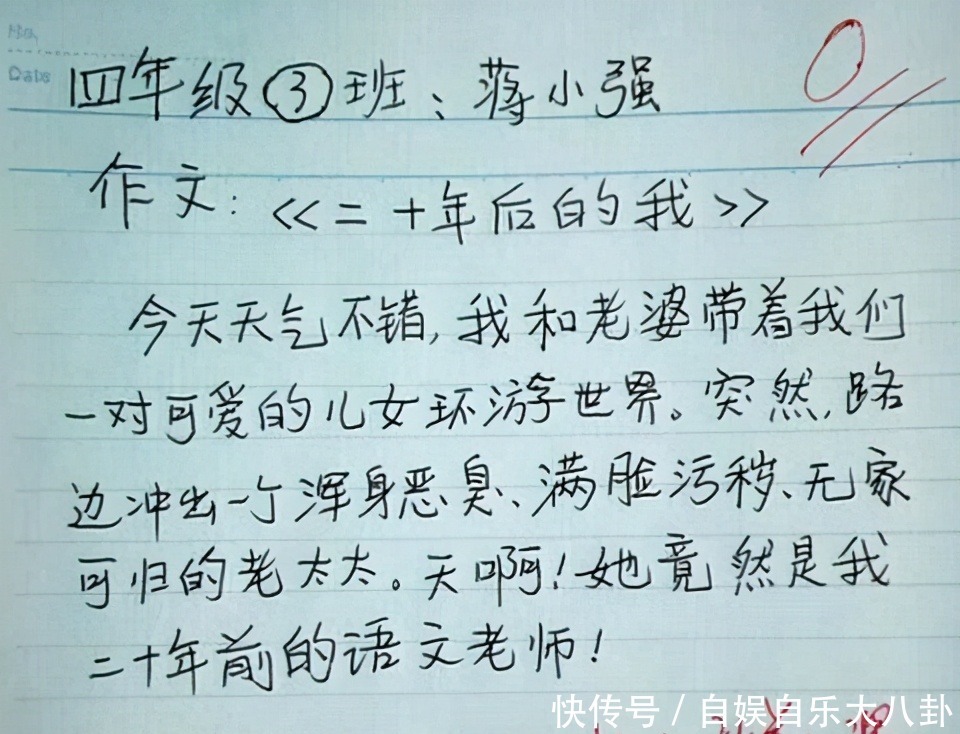 Date
四年级③班、蒋小强
0
作文:《二十年后的我》
今天天气不错,我和老婆带着我们
一对可爱的儿女环游世界。突然,路
边冲出一个浑身恶臭、满脸污秽、无家
可归的老太太。天啊!她竟然是我
二十年前的语文老师!
快传号/自娱自乐大八卦